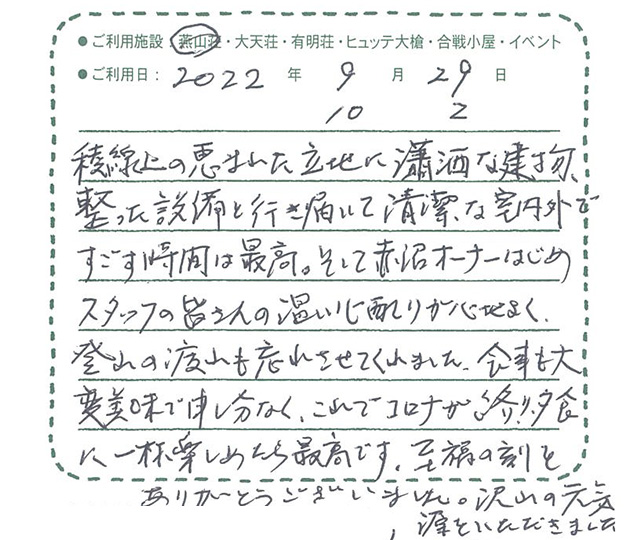 ● ご利用施設：燕山荘・大天荘・有明荘・ヒュッテ大槍・合戦小屋・イベント
● ご利用日： 2022 年 9 月 29 日
10 2
稜線上の恵まれた立地に瀟洒な建物、
整った設備と行き届いて清潔な室内外で
すごす時間は最高。そして赤沼オーナーはじめ
スタッフの皆さんの温い心配りが心地よく、
登山の疲れも忘れさせてくれました。食事も大
変美味で申し分なく、これでコロナが終り、夕食
に一杯楽しめたら最高です。至福の刻を
ありがとうございました。沢山の元気
、をいただきました